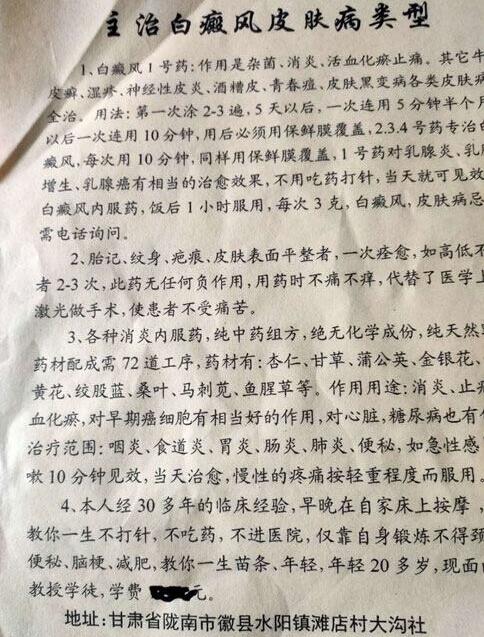 主治白癜风皮肤病类型
1、白癜风1号药:作用是杂菌、消炎、活血化瘀止痛。其它牛
皮癣、湿疹、神经性皮炎、酒糟皮、青春痘、皮肤黑变病各类皮肤病
全治。用法:第一次涂2-3遍,5天以后,一次连用5分钟半个月
以后一次连用10分钟,用后必须用保鲜膜覆盖,2.3.4号药专治的
癜风,每次用10分钟,同样用保鲜膜覆盖,1号药对乳腺炎、乳
增生、乳腺癌有相当的治愈效果,不用吃药打针,当天就可见效
白癜风内服药,饭后1小时服用,每次3克,白癜风,皮肤病忌
需电话询问。
2、胎记、纹身、疤痕、皮肤表面平整者,一次痊愈,如高低不
者2-3次,此药无任何负作用,用药时不痛不痒,代替了医学上
激光做手术,使患者不受痛苦。
3、各种消炎内服药,纯中药组方,绝无化学成份,纯天然
药材配成需72道工序,药材有:杏仁、甘草、蒲公英、金银花、
黄花、绞股蓝、桑叶、马刺苋、鱼腥草等。作用用途:消炎、止
血化瘀,对早期癌细胞有相当好的作用,对心脏,糖尿病也有
治疗范围:咽炎、食道炎、胃炎、肠炎、肺炎、便秘,如急性感
嗽10分钟见效,当天治愈,慢性的疼痛按轻重程度而服用。
4、本人经30多年的临床经验,早晚在自家床上按摩,
教你一生不打针,不吃药,不进医院,仅靠自身锻炼不得颈
便秘、脑梗、减肥,教你一生苗条、年轻,年轻20多岁,现面
教授学徒,学费 元。
地址:甘肃省陇南市徽县水阳镇滩店村大沟社